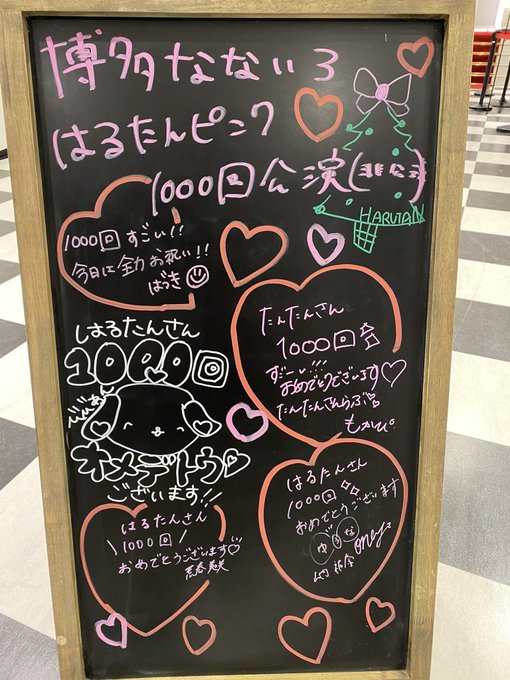 博多なないろ
はるたんピンク
1000回公演
HARUTAN
1000回 すごい!!
今日は全力お祝い!!
はづき
はるたんさん
1000回
オメデトウ
ございます!!
たんたんさん
1000回
すごーい!!!
おめでとうございます♡
たんたんさんらぶ
もかぴ
はるたんさん
1000回
おめでとうございます
ゆうな
はるたんさん
\ 1000回 /
おめでとうございます♡